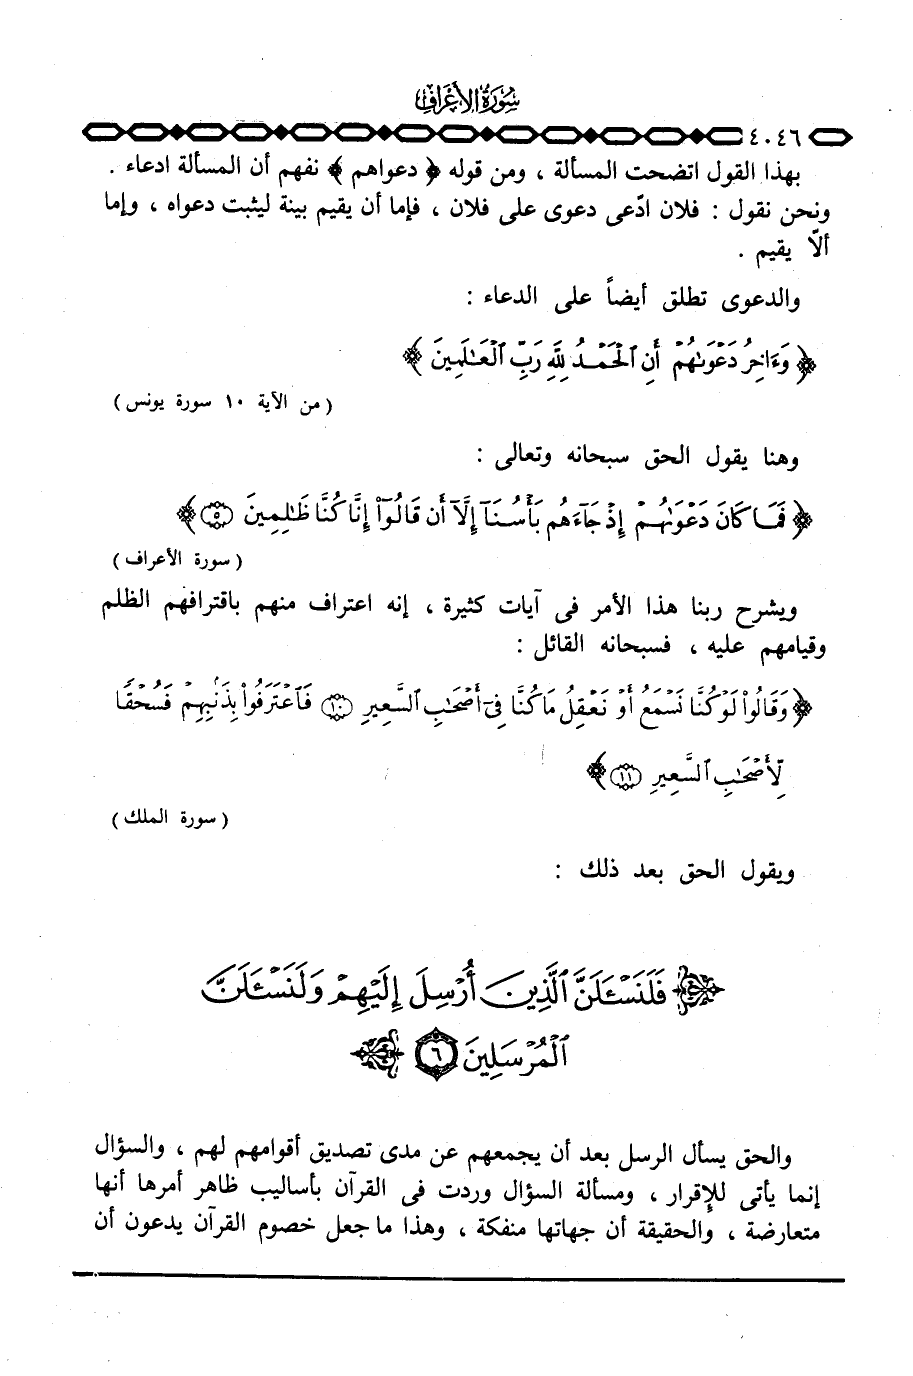 سُورَةُ الأَعْرَافِ
٤٠٤٦
بهذا القول اتضحت المسألة ، ومن قوله ﴿ دعواهم ﴾ نفهم أن المسألة ادعاء .
ونحن نقول : فلان ادّعى دعوى على فلان ، فإما أن يقيم بينة ليثبت دعواه ، وإما
ألاّ يقيم .
والدعوى تطلق أيضاً على الدعاء :
﴿ وَءَاخِرُ دَعْوَىٰهُمْ أَنِ ٱلْحَمْدُ لِلَّهِ رَبِّ ٱلْعَـٰلَمِينَ ﴾
( من الآية ١٠ سورة يونس )
وهنا يقول الحق سبحانه وتعالى :
﴿ فَمَا كَانَ دَعْوَىٰهُمْ إِذْ جَآءَهُم بَأْسُنَآ إِلَّآ أَن قَالُوٓا۟ إِنَّا كُنَّا ظَـٰلِمِينَ ۝٥ ﴾
( سورة الأعراف )
ويشرح ربنا هذا الأمر فى آيات كثيرة ، إنه اعتراف منهم باقترافهم الظلم
وقيامهم عليه ، فسبحانه القائل :
﴿ وَقَالُوا۟ لَوْ كُنَّا نَسْمَعُ أَوْ نَعْقِلُ مَا كُنَّا فِىٓ أَصْحَـٰبِ ٱلسَّعِيرِ ۝١٠ فَٱعْتَرَفُوا۟ بِذَنۢبِهِمْ فَسُحْقًا
لِّأَصْحَـٰبِ ٱلسَّعِيرِ ۝١١ ﴾
( سورة الملك )
ويقول الحق بعد ذلك :
﴿ فَلَنَسْـَٔلَنَّ ٱلَّذِينَ أُرْسِلَ إِلَيْهِمْ وَلَنَسْـَٔلَنَّ
ٱلْمُرْسَلِينَ ۝٦ ﴾
والحق يسأل الرسل بعد أن يجمعهم عن مدى تصديق أقوامهم لهم ، والسؤال
إنما يأتى للإقرار ، ومسألة السؤال وردت فى القرآن بأساليب ظاهر أمرها أنها
متعارضة ، والحقيقة أن جهاتها منفكة ، وهذا ما جعل خصوم القرآن يدعون أن